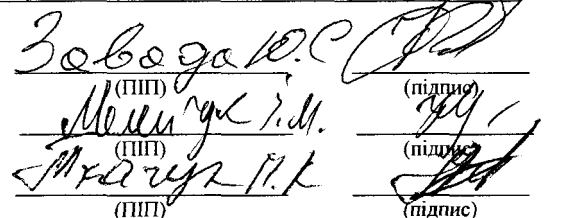 Завада Ю.С
(ПІП) (підпис)
Мельничук І.М.
(ПІП) (підпис)
Ткачук П.К
(ПІП) (підпис)